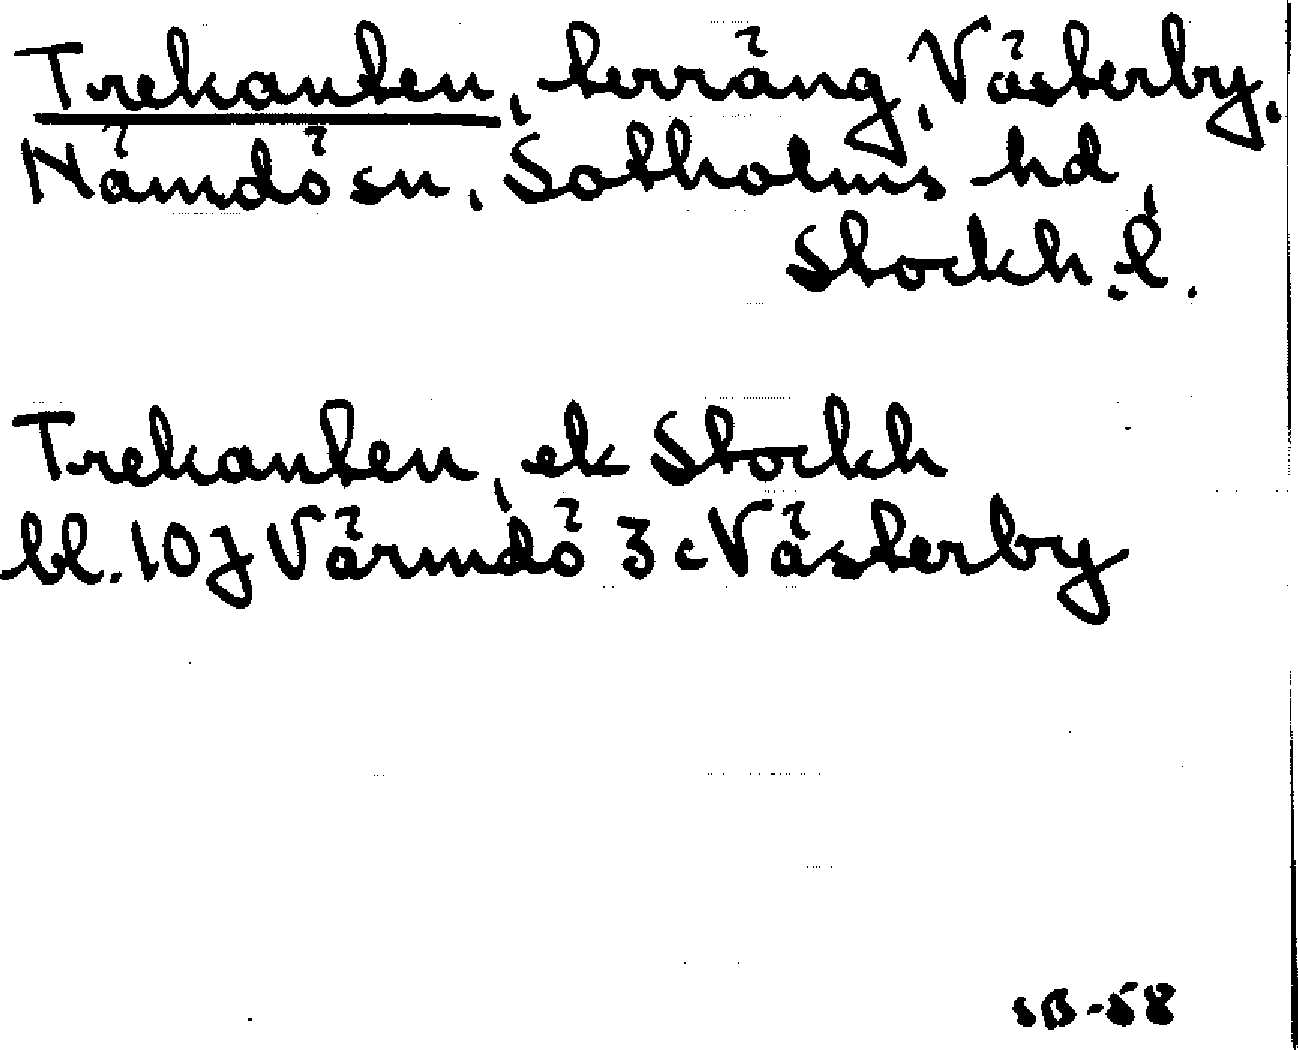 Trekanten, terräng, Västerby,
Nämdö sn, Sotholms hd,
Stockh. l.
Trekanten, ek Stockh
bl. 10J Värmdö 3c Västerby
SB-58